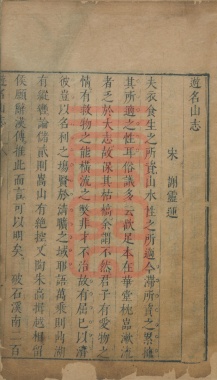 遊名山志
宋 謝靈運
夫衣食生之所資山水性之所適今滯所資之累擁
其所適之性耳俗議多云歡足本在華堂枕巖漱流
者乏於大志故保其枯槁余謂不然君子有愛物之
情有救物之能橫流之弊非才不治故有屈己以濟
彼豈以名利之場賢於清曠之域耶語萬乘則鼎湖
有縱轡論儲貳則嵩山有絕控又陶朱高揖越相留
侯願辭漢傅推此而言可以明矣 破石溪南二百